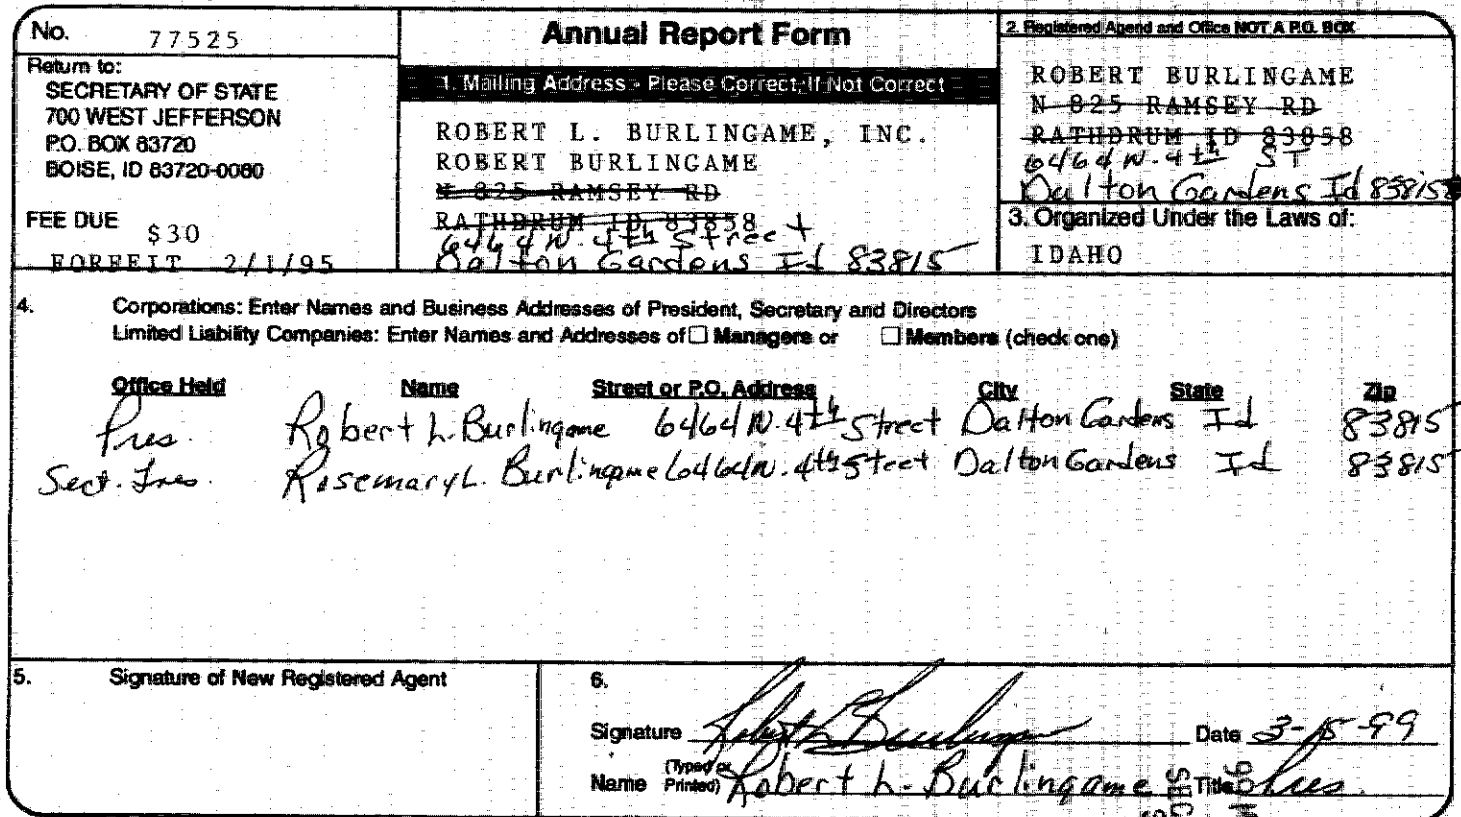 No. 77525
Return to:
SECRETARY OF STATE
700 WEST JEFFERSON
P.O. BOX 83720
BOISE, ID 83720-0080
FEE DUE $30
FORFEIT 2/1/95
Annual Report Form
1. Mailing Address - Please Correct, If Not Correct
ROBERT L. BURLINGAME, INC.
ROBERT BURLINGAME
N 825 RAMSEY RD
RATHDRUM ID 83858
6464 N. 4th Street
Dalton Gardens Id 83815
2. Registered Agend and Office NOT A P.O. BOX
ROBERT BURLINGAME
N 825 RAMSEY RD
RATHDRUM ID 83858
6464 N. 4th ST
Dalton Gardens Id 83815
3. Organized Under the Laws of:
IDAHO
4. Corporations: Enter Names and Business Addresses of President, Secretary and Directors
Limited Liability Companies: Enter Names and Addresses of ☐ Managers or ☐ Members (check one)
Office Held Name Street or P.O. Address City State Zip
Pres. Robert L. Burlingame 6464 N. 4th Street Dalton Gardens Id 83815
Sect. Tres. Rosemary L. Burlingame 6464 N. 4th Steet Dalton Gardens Id 83815
5. Signature of New Registered Agent
6.
Signature Robert L Burlingame Date 3-15-99
Name (Typed or Printed) Robert L. Burlingame Title Pres.